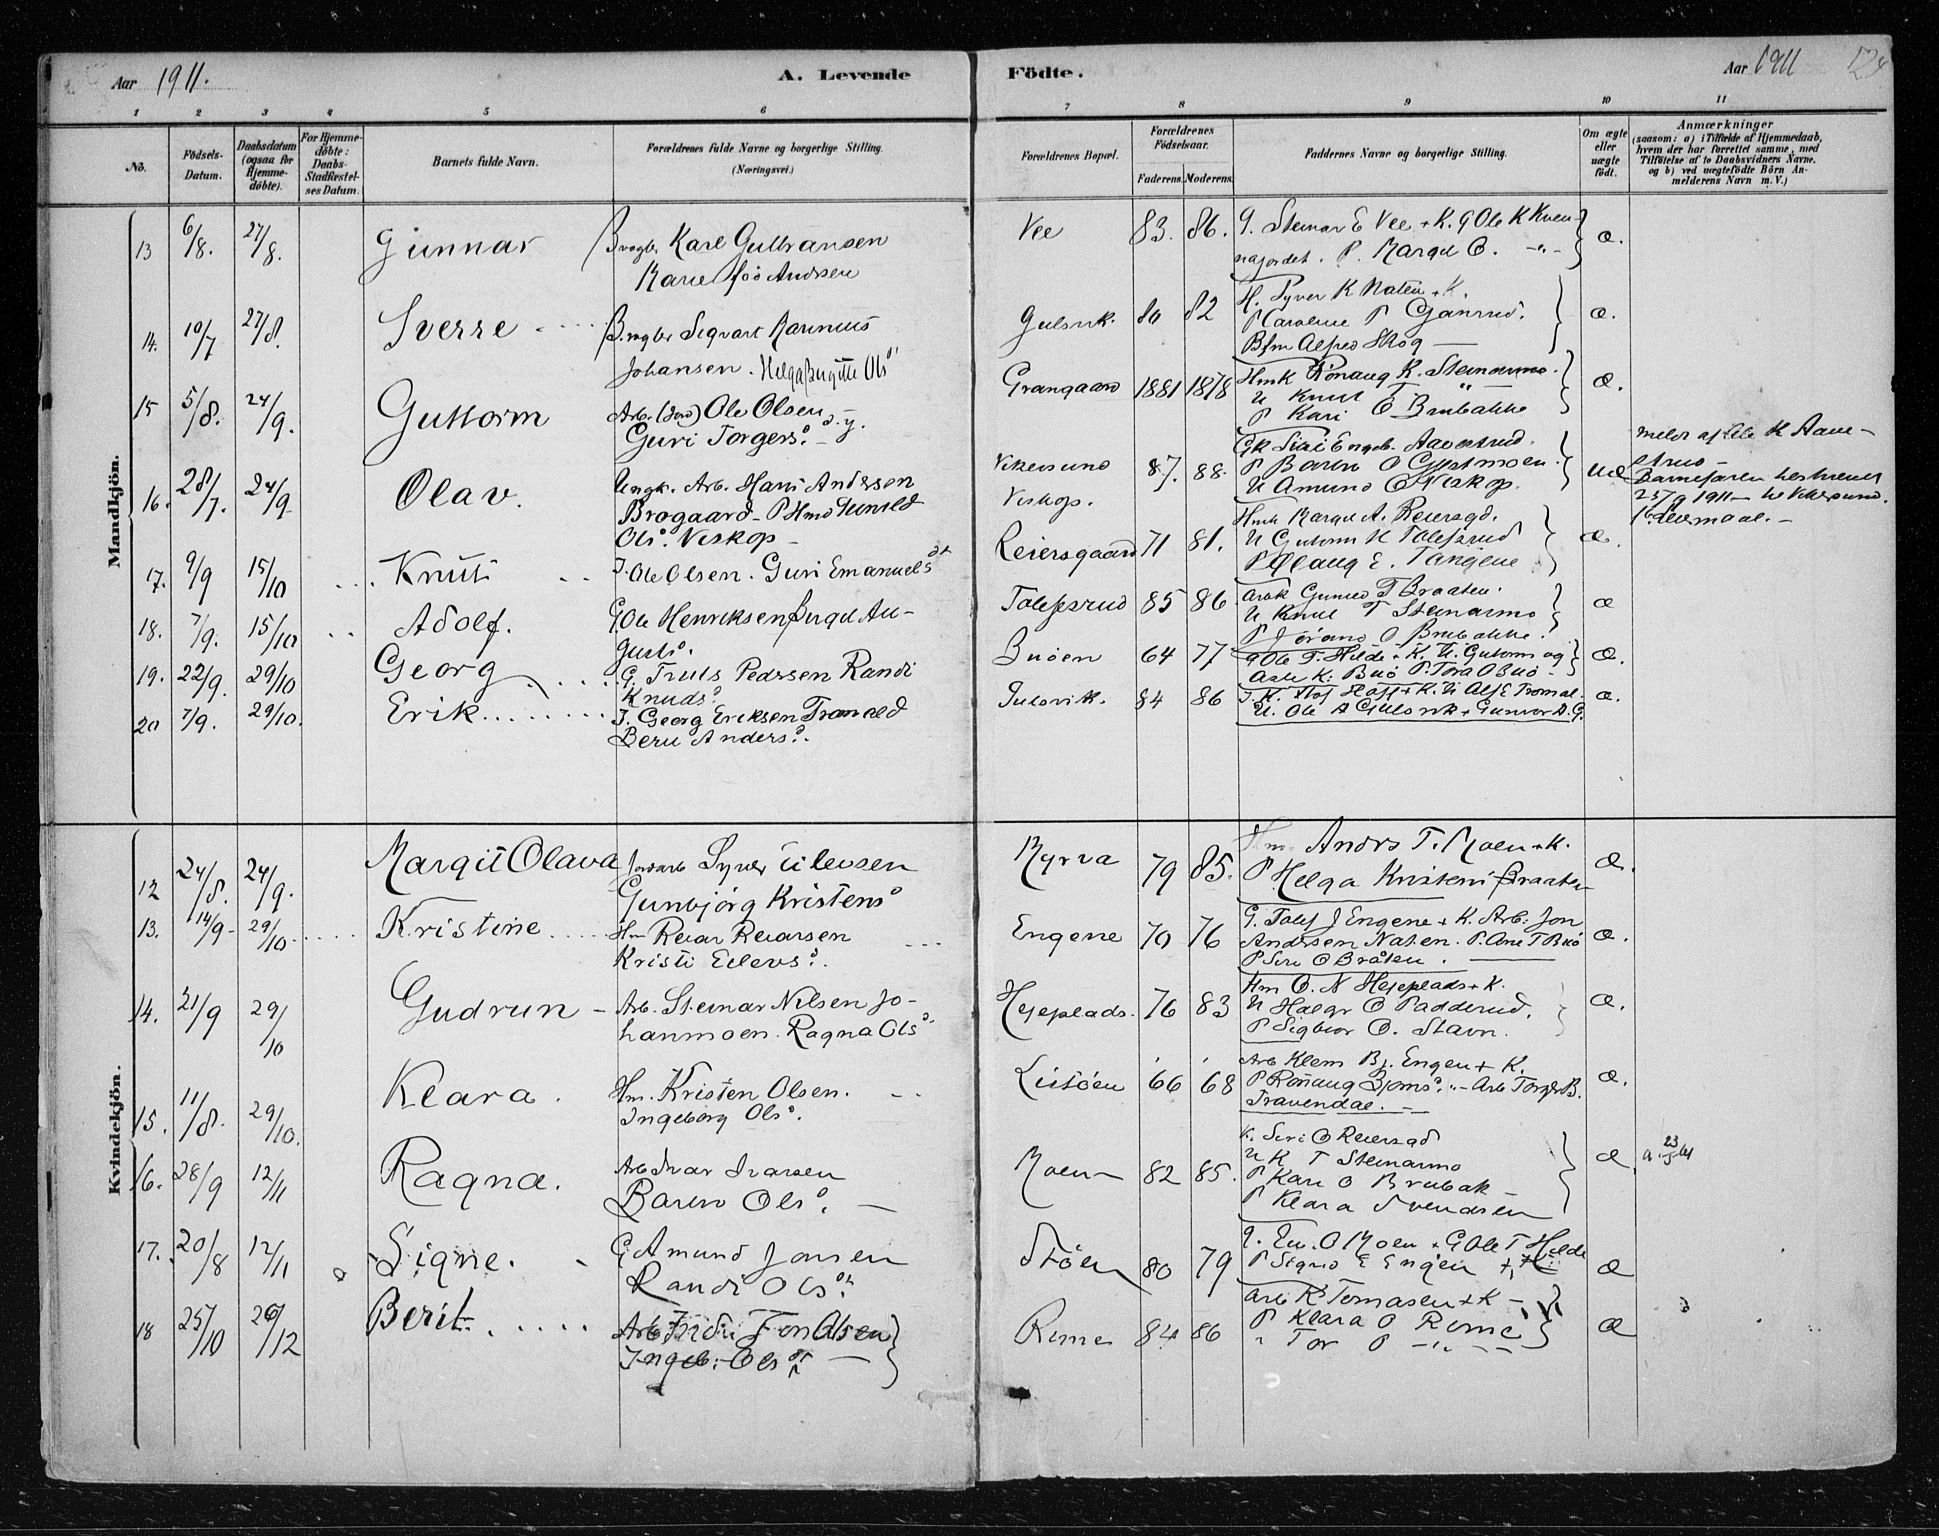 Aar 1911.
A. Levende Födte.
Aar 1911
1 2 3 4 5 6 7 8 9 10 11
No.
Födsels-Datum.
Daabsdatum (ogsaa for Hjemme-döbte).
For Hjemme-döbte: Daabs-Stadfæstel-ses Datum.
Barnets fulde Navn.
Forældrenes fulde Navne og borgerlige Stilling (Næringsvei.)
Forældrenes Bopæl.
Forældrenes Födselsaar.
Faderens. Moderens.
Faddernes Navne og borgerlige Stilling.
Om ægte eller uægte födt.
Anmærkninger
(saasom: a) i Tilfælde af Hjemmedaab, hvem der har forrettet samme, med Tilföielse af to Daabsvidners Navne, og b) ved uægtefödte Börn An-melderens Navn m. V.)
Mandkjön.
13 6/8. 27/8. Gunnar
Karl Gulbransen
Marie Andsen
Vee 83. 86. G. Steinar E Vee + K. G Ole K Kven-
najordet. P. Margit O. -"-
æ.
14. 10/7 27/8. Sverre
Sigvart Rasmus
Johansen. Helga Birgitte Ols
Gulsvik. 80 82 H. Syver K Naten + K.
P Karoline P Gjanrud.
Bfm Alfred Skog
æ.
15 5/8. 24/9. Guttorm
Arb. (Jord) Ole Olsen
Guri Torgers.
Grangaard 1881 1878 Hmk Rönaug K. Steinarmo.
U Knut T "
P Kari O Brubakke
æ.
16. 28/7. 24/9 Olav.
Ungk. Arb. Hans Anderson
Brogaard - P Hmd Gunild
Ols. Viskop
Vikersund 87. 88.
Viskop.
Gk Siri Engeb. Aavestrud.
P Barbro O
U Amund O Viskop.
uæ
meldt af Ole K Aave-
strud
Barnefaren
25/9 1911
17. 9/9 15/10 Knut
J. Ole Olsen. Guri Emanuels
Reiersgaard 71 81. Hmk Margit A. Reiersgd.
U Gutorm K Tolefsrud
P Olaug E. Tangene
æ.
18. 7/9. 15/10 Adolf.
G Ole Henriksen Birgit Au-
gusts.
Tolefsrud 85 86. Arbk Gunild T Braaten.
U Knut T Steinarmo
P Jörand O Brubakke.
æ
19. 22/9. 29/10 Georg
G. Truls Pedersen Randi
Knuds.
Buöen 64 77 G Ole T. Hilde + K. U. Gutorm og
Asle K. Buö P. Tora O Buö
æ.
20 7/9. 29/10. Erik
J. Georg Eriksen Tromald
Berit Anders.
Gulsvik. 84 86 J. K. Haft + K. U Alf E Tromal.
U. Ole A Gulsvik + Gunvor A. G.
æ.
Kvindekjön.
12 24/8. 24/9. Margit Olava
Jordarb Syver Eilevsen
Gunbjörg Kristens
Myrva 79 85. Hm. Andrs T. Moen + K.
P Helga Kristens Braaten
æ.
13. 14/9 29/10 Kristine
Hm Reiar Reiarsen
Kristi Eilevs.
Engene 70 76 G. Tolef J Engene + K. Arb. Jon
Andersen Naten. P. Ane T Buö
P Siri O Bråten.
æ.
14. 21/9 29/10 Gudrun
Arb. Steinar Nilsen Jo-
hanmoen. Ragna Ols
Hejeplads. 76 83 Hm O. N Hejeplads + K.
U Halgr O Padderud.
P Sigbior O. Stavn.
æ.
15. 11/8. 29/10. Klara.
Hm. Kristen Olsen.
Ingeborg Ols.
Listöen 66 68 Arb Klem Bj. Engen + K.
P Rönaug Bjorns. - Arb Torgr B.
Travendal.
æ.
16. 28/9 12/11 Ragna.
Arb Ivar Ivarsen
Barbro Ols.
Moen 82 85. K. Siri O Reiersgd
U K T Steinarmo
P Kari O Brubak
P Klara Svendsen
æ
17. 20/8 12/11 Signe.
G Amund Jonsen
Randi Ols.
Stöen 80 79 U. O Moen + G Ole T Hilde
P Signe E Engen
æ
18 25/10 26/12 Berit
Arb Jon Olsen
Ingeb. Ols
Rime 84 86 Arb K. Tomasen + K
P Klara O Rime
" Tor O -"-
æ